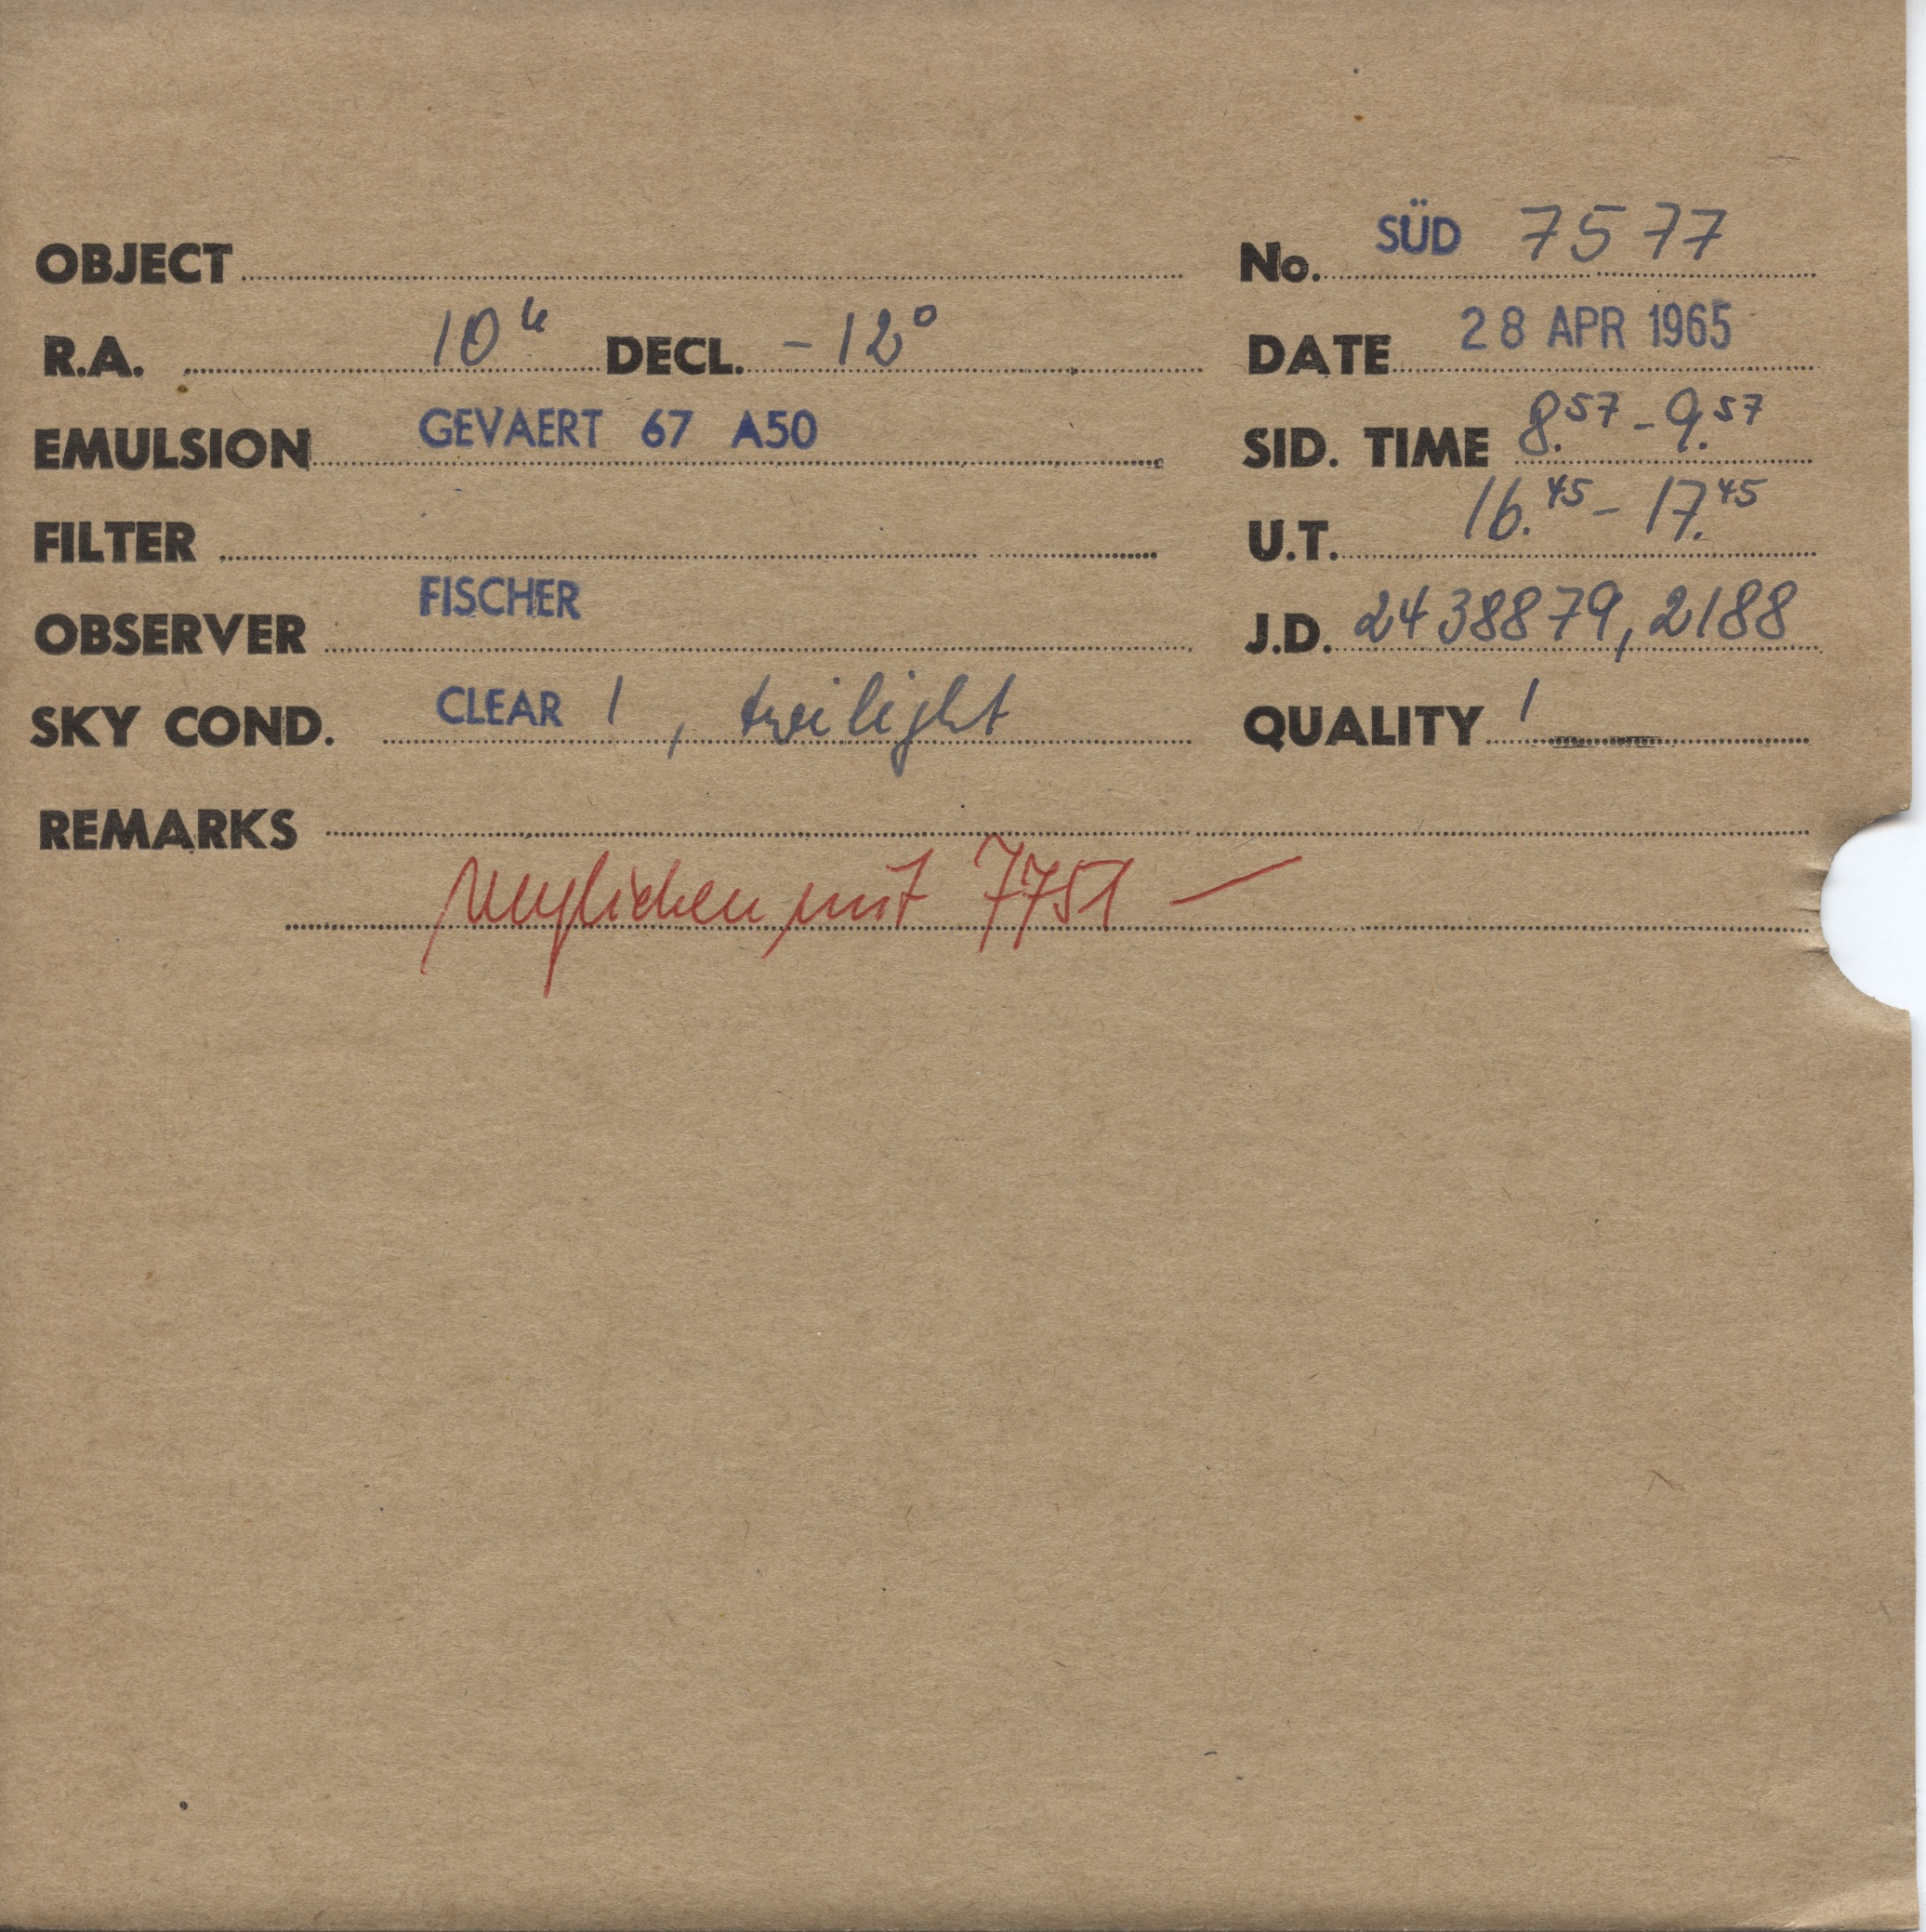 OBJECT No. SÜD 7577
R.A. 10h DECL. -12° DATE 28 APR 1965
EMULSION GEVAERT 67 A50 SID. TIME 8.57 - 9.57
FILTER U.T. 16.45 - 17.45
OBSERVER FISCHER J.D. 2438879,2188
SKY COND. CLEAR 1, twilight QUALITY 1
REMARKS
verglichen mit 7751 —